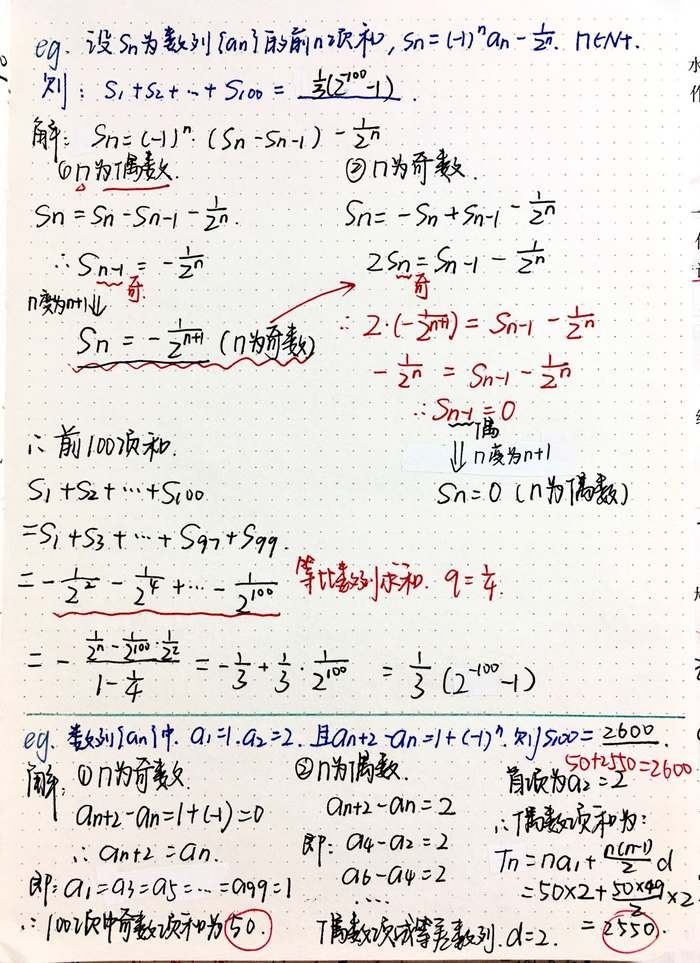 eg. 设Sn为数列{an}的前n项和, Sn=(-1)ⁿan-1/2ⁿ. n∈N+.
则: S₁+S₂+…+S₁₀₀= 1/3(2⁻¹⁰⁰-1).
解: Sn=(-1)ⁿ·(Sn-Sn-1)-1/2ⁿ
①n为偶数.
Sn=Sn-Sn-1-1/2ⁿ.
∴Sn-1=-1/2ⁿ
奇.
n变为n+1⇓
Sn=-1/2ⁿ⁺¹ (n为奇数)
②n为奇数.
Sn=-Sn+Sn-1-1/2ⁿ
2Sn=Sn-1-1/2ⁿ
奇
∴2·(-1/2ⁿ⁺¹)=Sn-1-1/2ⁿ
-1/2ⁿ=Sn-1-1/2ⁿ
∴Sn-1=0
偶
⇓n变为n+1
Sn=0 (n为偶数)
∴前100项和.
S₁+S₂+…+S₁₀₀
=S₁+S₃+…+S₉₇+S₉₉.
=-1/2²-1/2⁴+…-1/2¹⁰⁰ 等比数列求和. q=1/4.
=-(1/2ⁿ-1/2¹⁰⁰·1/2²)/(1-1/4)=-1/3+1/3·1/2¹⁰⁰ =1/3(2⁻¹⁰⁰-1)
eg. 数列{an}中. a₁=1. a₂=2. 且an+2-an=1+(-1)ⁿ. 则S₁₀₀=2600.
50+2550=2600
解: ①n为奇数.
an+2-an=1+(-1)=0
∴an+2=an.
即: a₁=a₃=a₅=…=a₉₉=1
∴100项中奇数项和为50.
②n为偶数.
an+2-an=2
即: a₄-a₂=2
a₆-a₄=2
…
偶数项成等差数列. d=2.
首项为a₂=2
∴偶数项和为:
Tn=na₁+n(n-1)/2 d
=50×2+50×49/2×2
=2550.